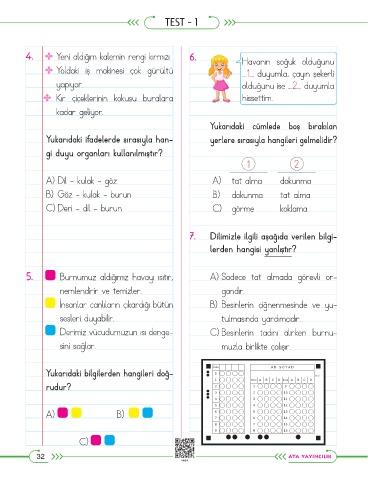 TEST - 1
4. Yeni aldığım kalemin rengi kırmızı.
Yoldaki iş makinesi çok gürültü
yapıyor.
Kır çiçeklerinin kokusu buralara
kadar geliyor.
Yukarıdaki ifadelerde sırasıyla han-
gi duyu organları kullanılmıştır?
A) Dil - kulak - göz
B) Göz - kulak - burun
C) Deri - dil - burun
5. Burnumuz aldığımız havayı ısıtır,
nemlendirir ve temizler.
İnsanlar canlıların çıkardığı bütün
sesleri duyabilir.
Derimiz vücudumuzun ısı denge-
sini sağlar.
Yukarıdaki bilgilerden hangileri doğ-
rudur?
A)
B)
C)
6. Havanın soğuk olduğunu
...1... duyumla, çayın şekerli
olduğunu ise ...2... duyumla
hissettim.
Yukarıdaki cümlede boş bırakılan
yerlere sırasıyla hangileri gelmelidir?
1 2
A) tat alma dokunma
B) dokunma tat alma
C) görme koklama
7. Dilimizle ilgili aşağıda verilen bilgi-
lerden hangisi yanlıştır?
A) Sadece tat almada görevli or-
gandır.
B) Besinlerin çiğnenmesinde ve yu-
tulmasında yardımcıdır.
C) Besinlerin tadını alırken burnu-
muzla birlikte çalışır.
AD SOYAD
32
ATA YAYINCILIK